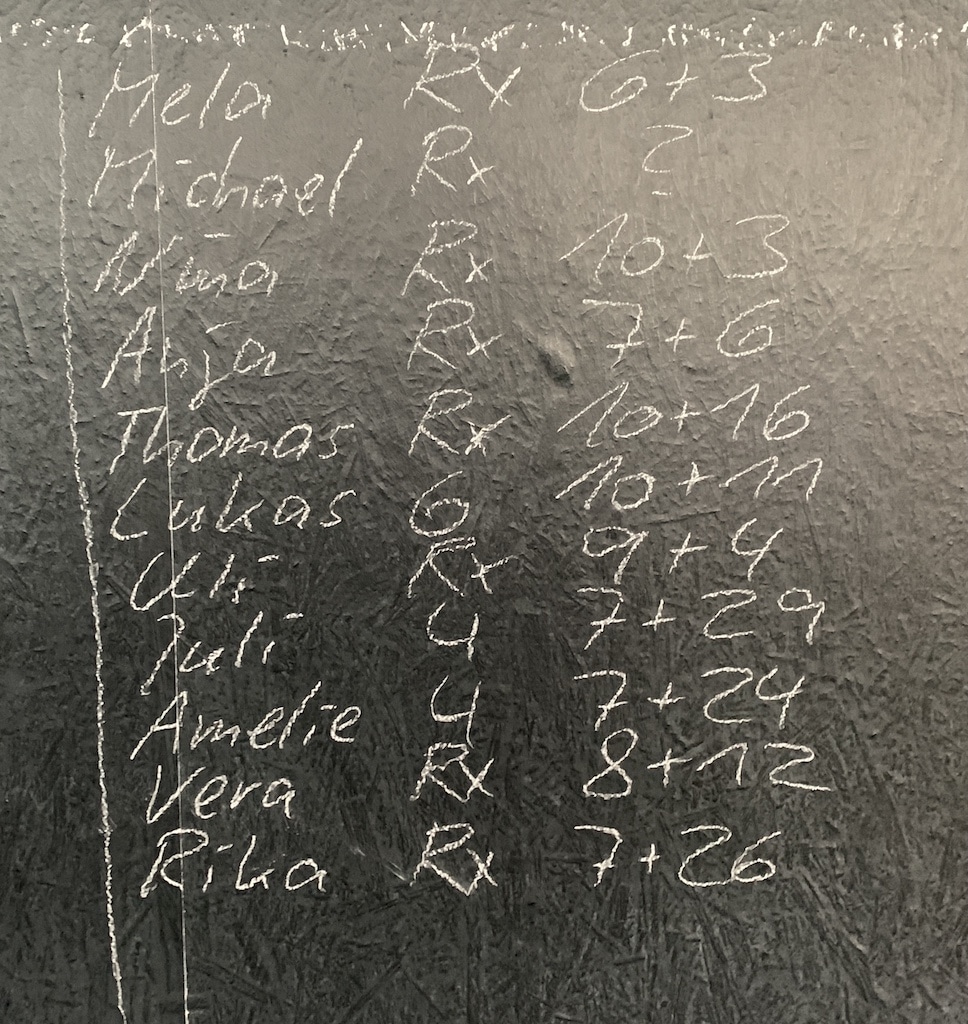 Mela Rx 6+3
Michael Rx ?
Nina Rx 10+3
Anja Rx 7+6
Thomas Rx 10+16
Lukas 6 10+11
Uli Rx 9+4
Juli 4 7+29
Amelie 4 7+24
Vera Rx 8+12
Rika Rx 7+26